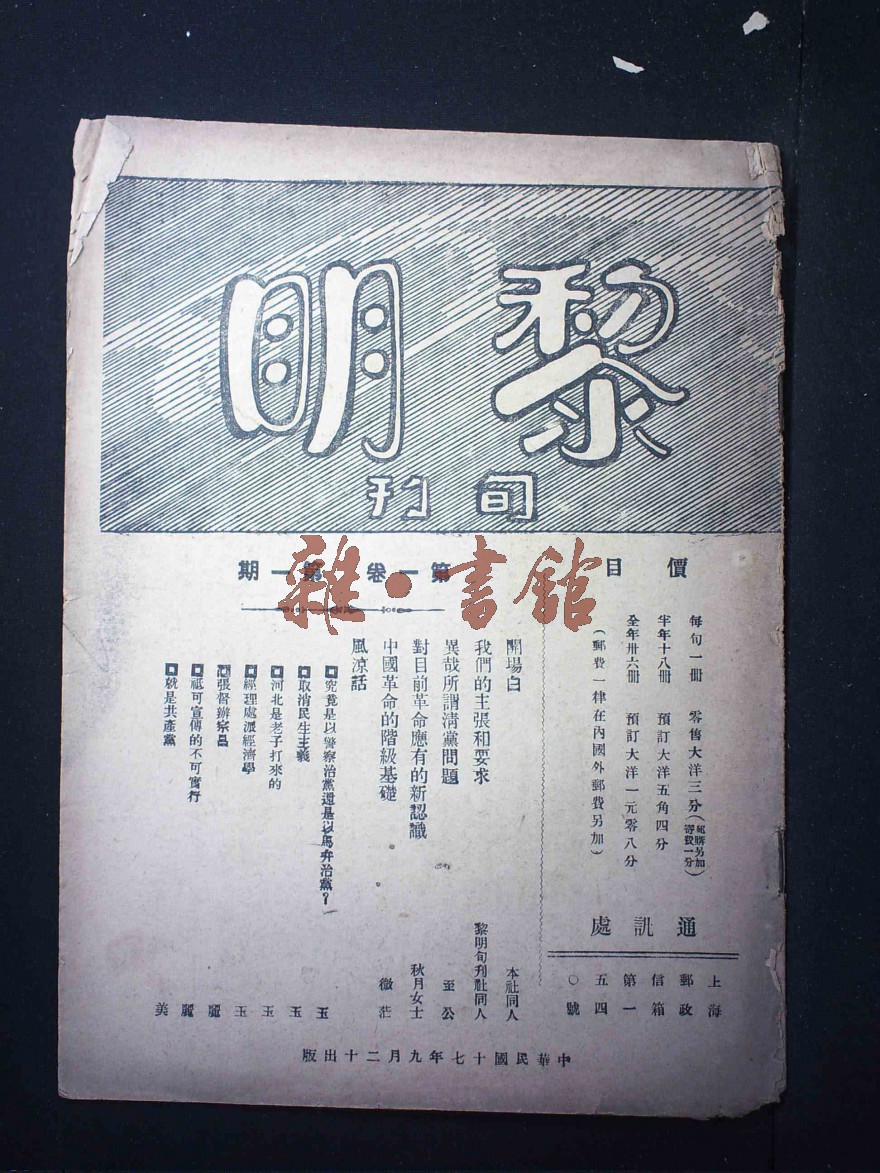 黎明
旬刊
第一卷 第一期
雜·書館
價目
每旬一冊 零售大洋三分(函購另加寄費一分)
半年十八冊 預訂大洋五角四分
全年卅六冊 預訂大洋一元零八分
(郵費一律在內國外郵費另加)
通訊處
上海
郵政
信箱
第一
五四
○號
開場白 本社同人
我們的主張和要求 黎明旬刊社同人
異哉所謂清黨問題 至公
對目前革命應有的新認識 秋月女士
中國革命的階級基礎 微茫
風涼話
究竟是以警察治黨還是以馬弁治黨? 玉
取消民生主義 玉
河北是老子打來的 玉
經理處派經濟學 玉
張督辦察昌 麗
祗可宣傳的不可實行 麗
就是共產黨 美
中華民國十七年九月二十出版